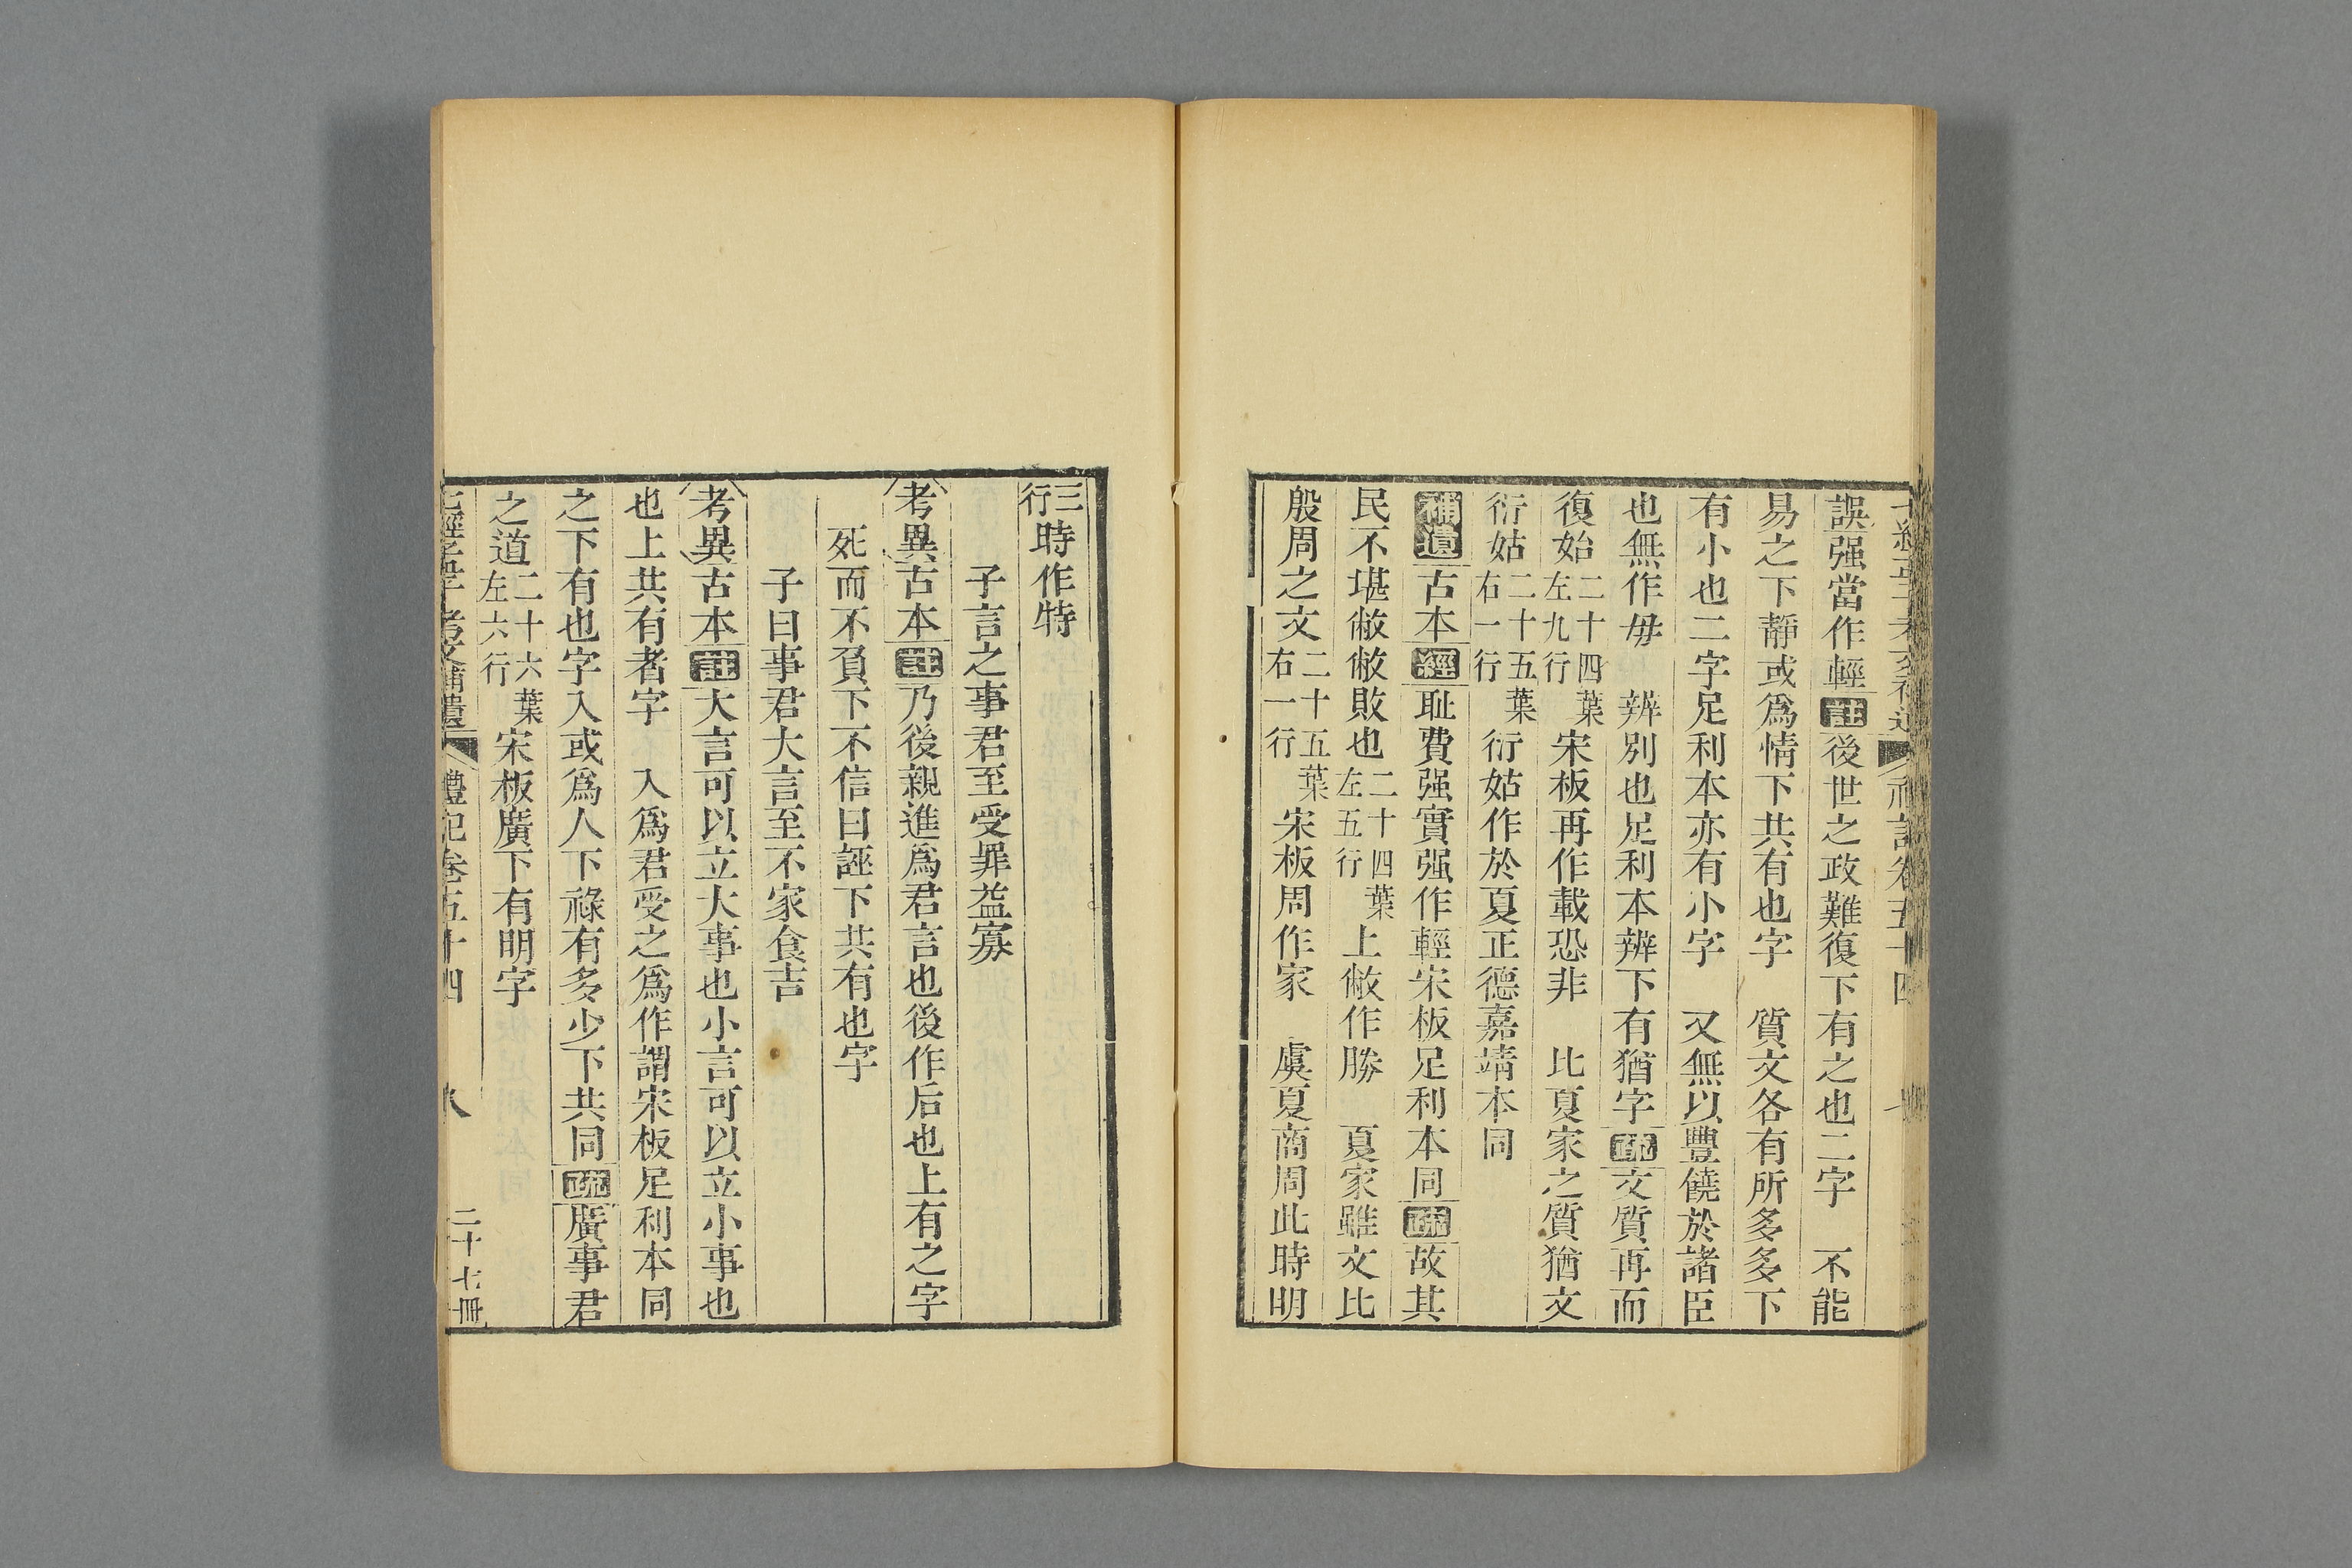 誤强當作輕註後世之政難復下有之也二字　不能
易之下靜或爲情下共有也字　質文各有所多多下
有小也二字足利本亦有小字　又無以豐饒於諸臣
也無作毋　辨別也足利本辨下有猶字疏文質再而
復始二十四葉左九行宋板再作載恐非　比夏家之質猶文
衍姑二十五葉右一行衍姑作於夏正德嘉靖本同
補遺古本經耻費强實强作輕宋板足利本同疏故其
民不堪敝敝敗也二十四葉左五行上敝作勝　夏家雖文比
殷周之文二十五葉右一行宋板周作家　虞夏商周此時明
三行時作特
子言之事君至受罪益寡
考異古本註乃後親進爲君言也後作后也上有之字
死而不負下不信曰誣下共有也字
子曰事君大言至不家食吉
考異古本註大言可以立大事也小言可以立小事也
也上共有者字　入爲君受之爲作謂宋板足利本同
之下有也字入或爲人下祿有多少下共同疏廣事君
之道二十六葉左六行宋板廣下有明字
七經孟子考文補遺　禮記卷五十四　八　二十七冊